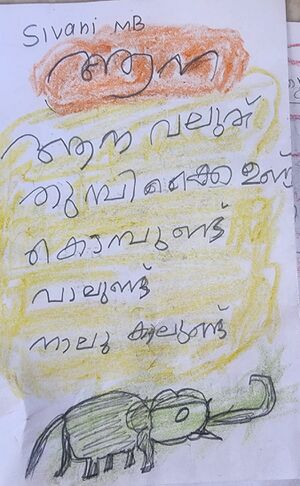 Sivani MB
ആന
ആന വലുത്
തുമ്പിക്കൈ ഉണ്ട്
കൊമ്പുണ്ട്
വാലുണ്ട്
നാലു കാലുണ്ട്